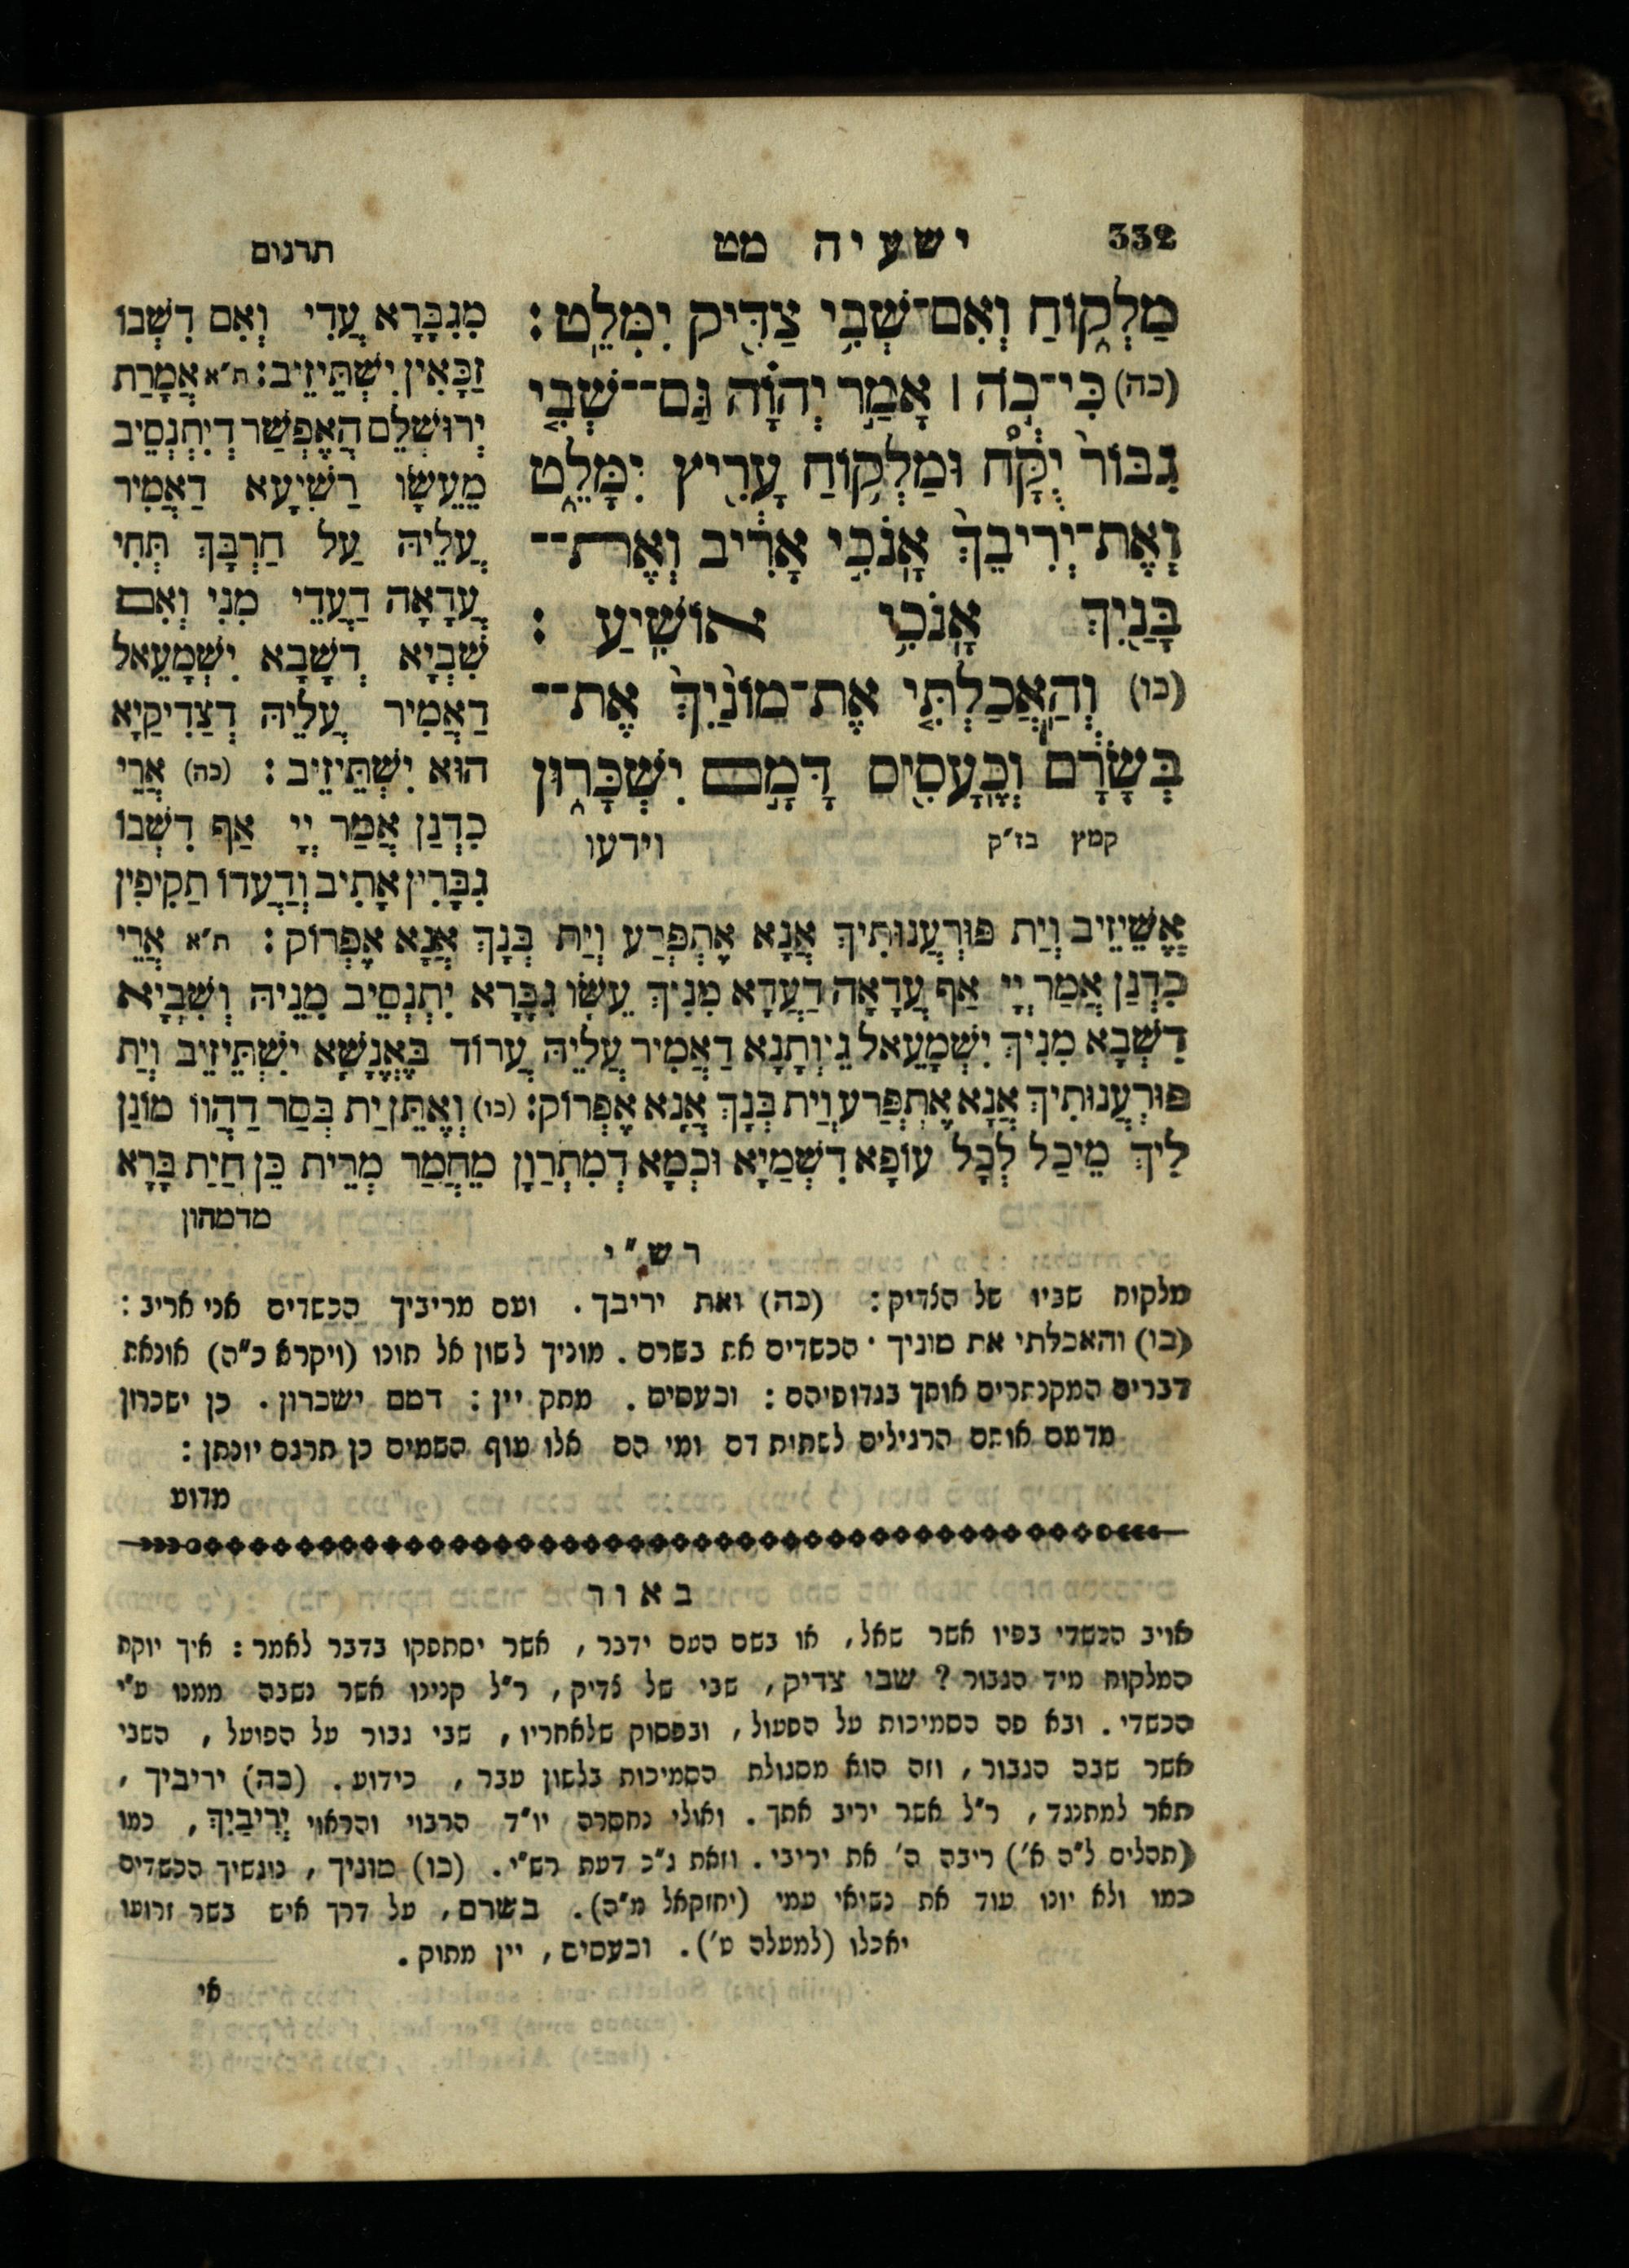 332
ישעיה מט
תרגום
מַלְק֑וֹחַ וְאִם־שְׁבִ֥י צַדִּ֖יק יִמָּלֵֽט׃
(כה) כִּי־כֹ֣ה ׀ אָמַ֣ר יְהוָ֗ה גַּם־־שְׁבִ֤י
גִבּוֹר֙ יֻקָּ֔ח וּמַלְק֥וֹחַ עָרִ֖יץ יִמָּלֵ֑ט
וְאֶת־יְרִיבֵךְ֙ אָנֹכִ֣י אָרִ֔יב וְאֶת־־
בָּנַ֖יִךְ אָנֹכִ֥י אוֹשִֽׁיעַ׃
(כו) וְהַאֲכַלְתִּ֤י אֶת־מוֹנַ֙יִךְ֙ אֶת־־
בְּשָׂרָ֔ם וְכֶעָסִ֖יס דָּמָ֣ם יִשְׁכָּר֑וּן
קמץ בז״ק
וידעו
מִגִבָּרָא עֲדִי וְאִם דִשְׁבוֹ
זַכָּאִין יִשְׁתֵּיזֵיב: ת״א אֲמָרַת
יְרוּשְׁלֵם הֲאֶפְשַׁר דְיִתְנְסֵיב
מֵעֵשָׂו רַשִׁיעָא דַאֲמִיר
עֲלֵיהּ עַל חַרְבָּךְ תְּחִי
עֲדָאָה דַעֲדֵי מִנִי וְאִם
שִׁבְיָא דְשָׁבָא יִשְׁמָעֵאל
דַאֲמִיר עֲלֵיהּ דְצַדִיקַיָא
הוּא יִשְׁתֵּיזֵיב: (כה) אֲרֵי
כִדְנַן אֲמַר יְיָ אַף דִשְׁבוֹ
גִבָּרִין אָתִיב וְדַעֲדוֹ תַקִיפִין
אֲשֵׁיזֵיב וְיַת פּוּרְעֲנוּתִיךְ אֲנָא אֶתְפְּרַע וְיַת בְּנָךְ אֲנָא אֶפְרוֹק: ת״א אֲרֵי
כִדְנַן אֲמַר יְיָ אַף עֲדָאָה דַעֲדָא מִנִיךְ עֵשָׂו גִבָּרָא יִתְנְסֵיב מִנֵיהּ וְשִׁבְיָא
דִשְׁבָא מִנִיךְ יִשְׁמָעֵאל גֵיוְתָנָא דַאֲמִיר עֲלֵיהּ עֲרוֹד בֶּאֱנָשָׁא יִשְׁתֵּיזֵיב וְיַת
פּוּרְעֲנוּתִיךְ אֲנָא אֶתְפְּרַע וְיַת בְּנָךְ אֲנָא אֶפְרוֹק: (כו) וְאֶתֵּן יַת בְּסַר דַהֲווֹ מוֹנַן
לִיךְ מֵיכַל לְכָל עוֹפָא דִשְׁמַיָא וּכְמָא דְמִתְרַוָן מֵחֲמַר מְרֵית כֵּן חֵיַת בָּרָא
מדמהון
רש״י
מלקוח שביו של הצדיק: (כה) ואת יריבך. ועם מריביך הכשדים אני אריב:
(כו) והאכלתי את מוניך · הכשדים את בשרם. מוניך לשון אל תונו (ויקרא כ״ה) אונאת
דברים המקנתרים אותך בגדופיהם: וכעסיס. מתק יין: דמם ישכרון. כן ישכרון
מדמם אותם הרגילים לשתית דם ומי הם אלו עוף השמים כן תרגם יונתן:
מדוע
באור
אויב הכשדי בפיו אשר שאל, או בשם העם ידבר, אשר יסתפקו בדבר לאמר: איך יוקח
המלקוח מיד הגבור? שבי צדיק, שבי של צדיק, ר״ל קנינו אשר נשבה ממנו ע״י
הכשדי. ובא פה הסמיכות על הפעול, ובפסוק שלאחריו, שבי גבור על הפועל, השבי
אשר שבה הגבור, וזה הוא מסגולת הסמיכות בלשון עבר, כידוע. (כה) יריביך,
תאר למתנגד, ר״ל אשר יריב אתך. ואולי נחסרה יו״ד הרבוי והראוי יְרִיבַיִךְ, כמו
(תהלים ל״ה א׳) ריבה ה׳ את יריבי. וזאת ג״כ דעת רש״י. (כו) מוניך, נוגשיך הכשדים
כמו ולא יונו עוד את נשיאי עמי (יחזקאל מ״ה). בשרם, על דרך איש בשר זרועו
יאכלו (למעלה ט׳). וכעסיס, יין מתוק.
אי